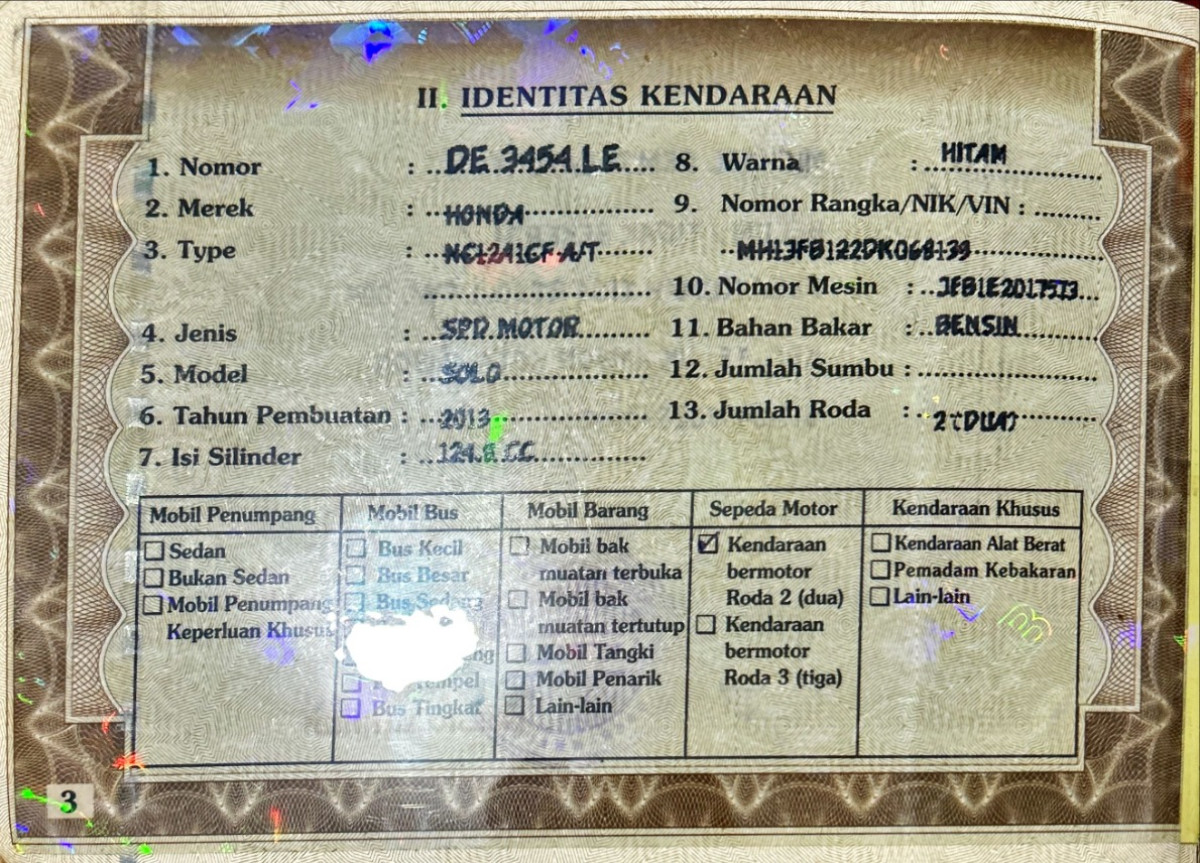 II. IDENTITAS KENDARAAN
1. Nomor : DE 3454 LE
2. Merek : HONDA
3. Type : NC12A1CF A/T
4. Jenis : SPD. MOTOR
5. Model : SOLO
6. Tahun Pembuatan : 2013
7. Isi Silinder : 124.8 CC
8. Warna : HITAM
9. Nomor Rangka/NIK/VIN :
MH1JFB122DK068139
10. Nomor Mesin : JFB1E2017573
11. Bahan Bakar : BENSIN
12. Jumlah Sumbu :
13. Jumlah Roda : 2 (DUA)
Mobil Penumpang
Sedan
Bukan Sedan
Mobil Penumpang
Keperluan Khusus
Mobil Bus
Bus Kecil
Bus Besar
Bus Sedang
Bus Tingkat
Mobil Barang
Mobil bak
muatan terbuka
Mobil bak
muatan tertutup
Mobil Tangki
Mobil Penarik
Lain-lain
Sepeda Motor
Kendaraan
bermotor
Roda 2 (dua)
Kendaraan
bermotor
Roda 3 (tiga)
Kendaraan Khusus
Kendaraan Alat Berat
Pemadam Kebakaran
Lain-lain
3